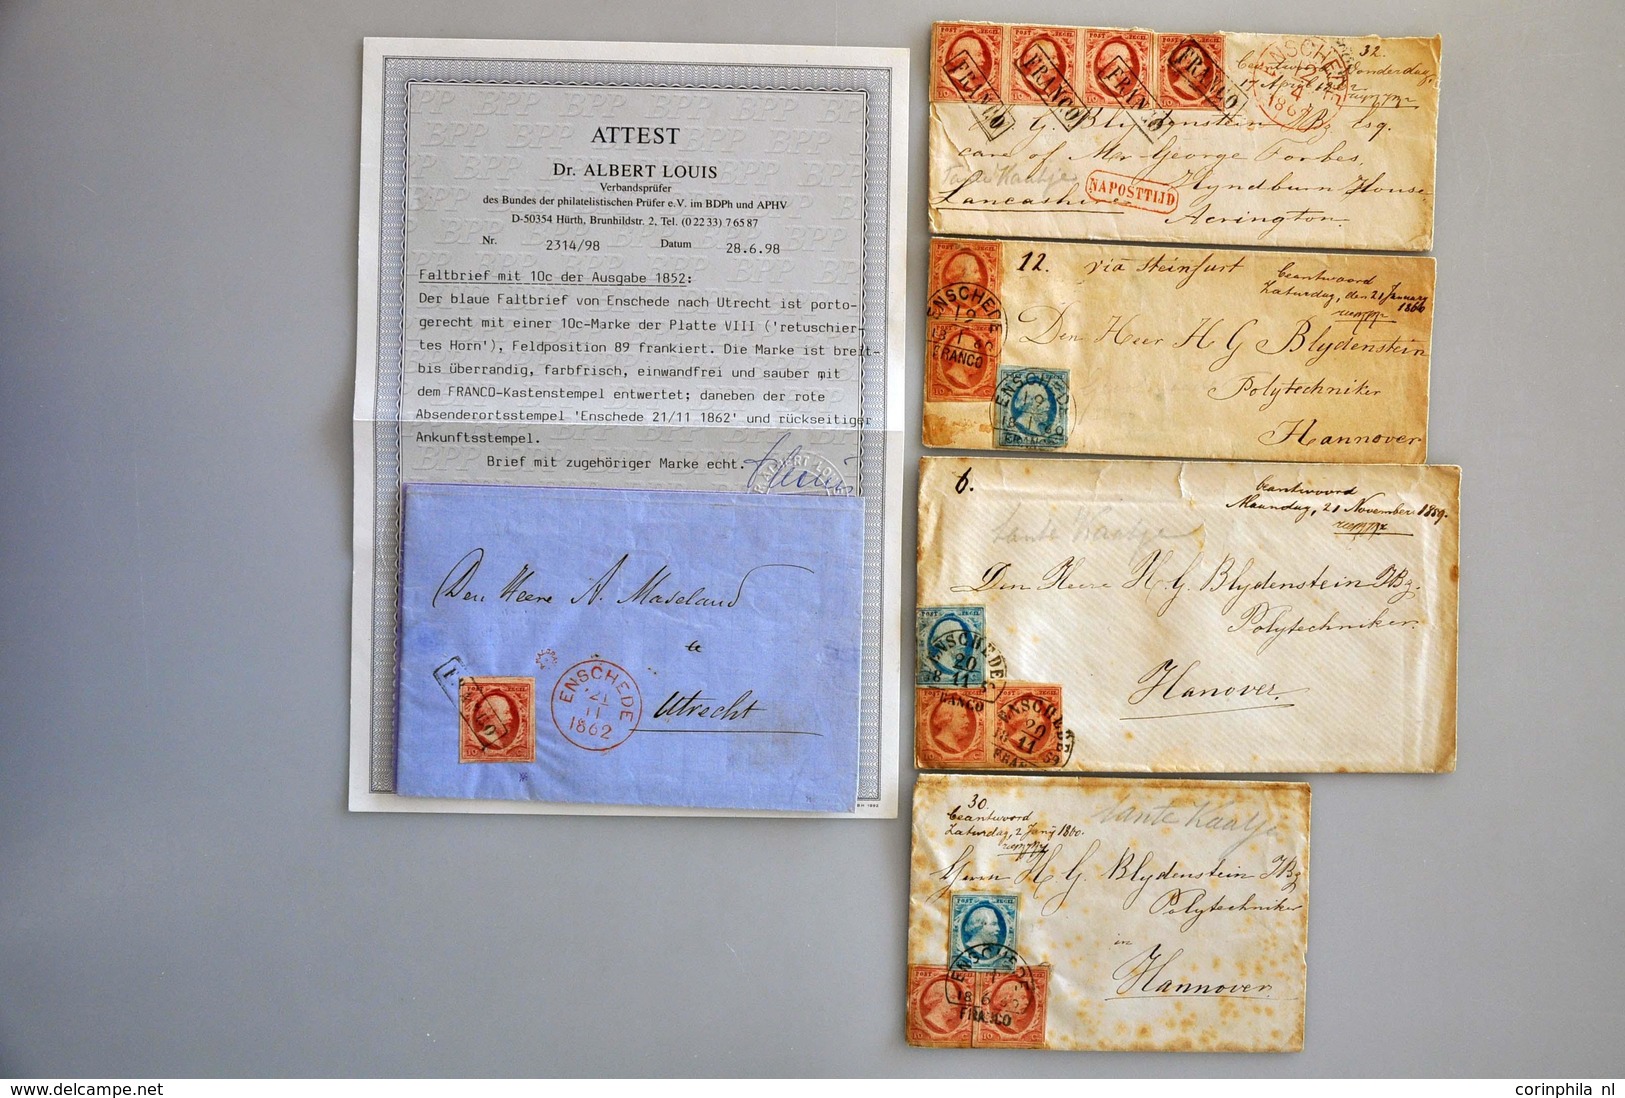 ATTEST
Dr. ALBERT LOUIS
Verbandsprüfer
des Bundes der philatelistischen Prüfer e.V. im BDPh und APHV
D-50354 Hürth, Brunhildstr. 2, Tel. (0 22 33) 7 65 87
Nr. 2314/98 Datum 28.6.98
Faltbrief mit 10c der Ausgabe 1852:
Der blaue Faltbrief von Enschede nach Utrecht ist porto-
gerecht mit einer 10c-Marke der Platte VIII ('retuschier-
tes Horn'), Feldposition 89 frankiert. Die Marke ist breit-
bis überrandig, farbfrisch, einwandfrei und sauber mit
dem FRANCO-Kastenstempel entwertet; daneben der rote
Absenderortsstempel 'Enschede 21/11 1862' und rückseitiger
Ankunftsstempel.
Brief mit zugehöriger Marke echt.
Den Heere A. Maseland
te
Utrecht
ENSCHEDE
21
11
1862
FRANCO FRANCO FRANCO FRANCO
32.
ENSCHEDE
H. G. Blydenstein JBzn Esq.
care of Mr George Forbes,
Tante Kaatje Hyndburn House
NAPOSTTIJD
Lancashire Accrington
12. via Steinfurt
beantwoord
Zaturdag, den 21 January
1860
Den Heer H G Blydenstein
Polytechniker
Hannover
ENSCHEDE
FRANCO
ENSCHEDE
6.
beantwoord
Maandag, 21 November 1859.
Tante Kaatje
Den Heere H. G. Blydenstein JBz.
Polytechniker
Hanover.
ENSCHEDE
20
11
FRANCO
ENSCHEDE
20
11
30.
beantwoord
Zaturdag, 2 Janij 1860.
Tante Kaatje
Herrn H. G. Blydenstein JBz
Polytechniker
in
Hannover.
ENSCHEDE
FRANCO
corinphila nl